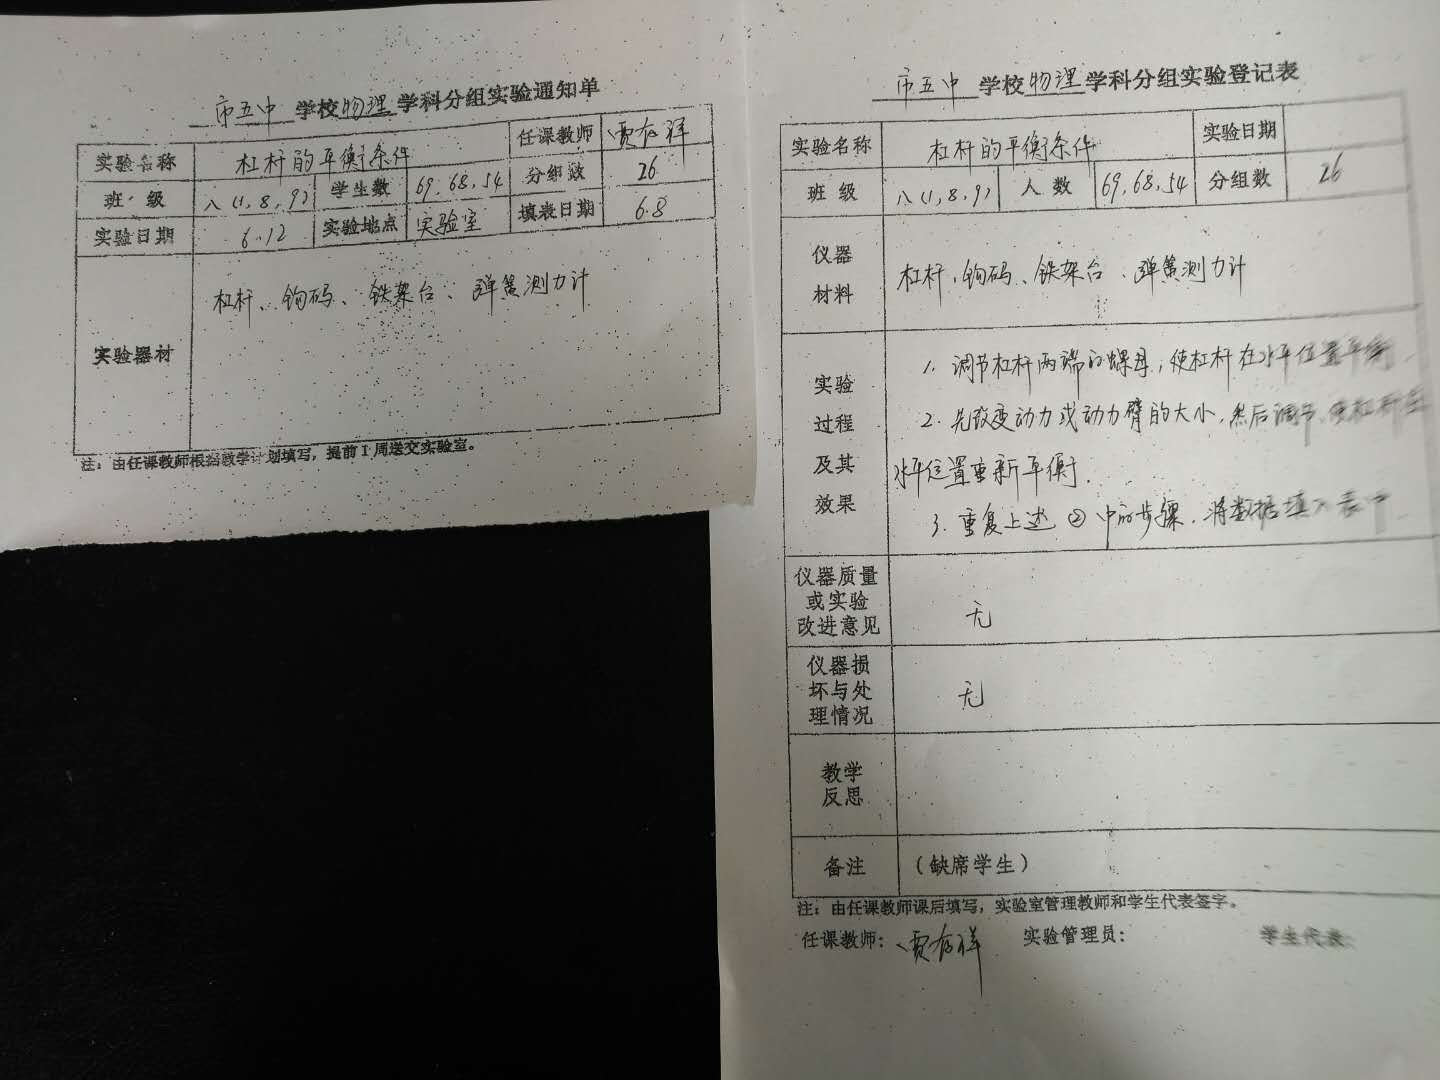 市五中 学校 物理 学科分组实验通知单
实验名称 杠杆的平衡条件 任课教师 贾存祥
班级 八(1,8,9) 学生数 69,68,54 分组数 26
实验日期 6.12 实验地点 实验室 填表日期 6.8
实验器材 杠杆、钩码、铁架台、弹簧测力计
注：由任课教师根据教学计划填写，提前1周送交实验室。
市五中 学校 物理 学科分组实验登记表
实验名称 杠杆的平衡条件 实验日期
班级 八(1,8,9) 人数 69,68,54 分组数 26
仪器材料 杠杆、钩码、铁架台、弹簧测力计
实验过程及其效果
1. 调节杠杆两端的螺母，使杠杆在水平位置平衡
2. 先改变动力或动力臂的大小，然后调节，使杠杆在
水平位置重新平衡.
3. 重复上述②中的步骤，将数据填入表中
仪器质量或实验改进意见 无
仪器损坏与处理情况 无
教学反思
备注 （缺席学生）
注：由任课教师课后填写，实验室管理教师和学生代表签字。
任课教师： 贾存祥 实验管理员： 学生代表：